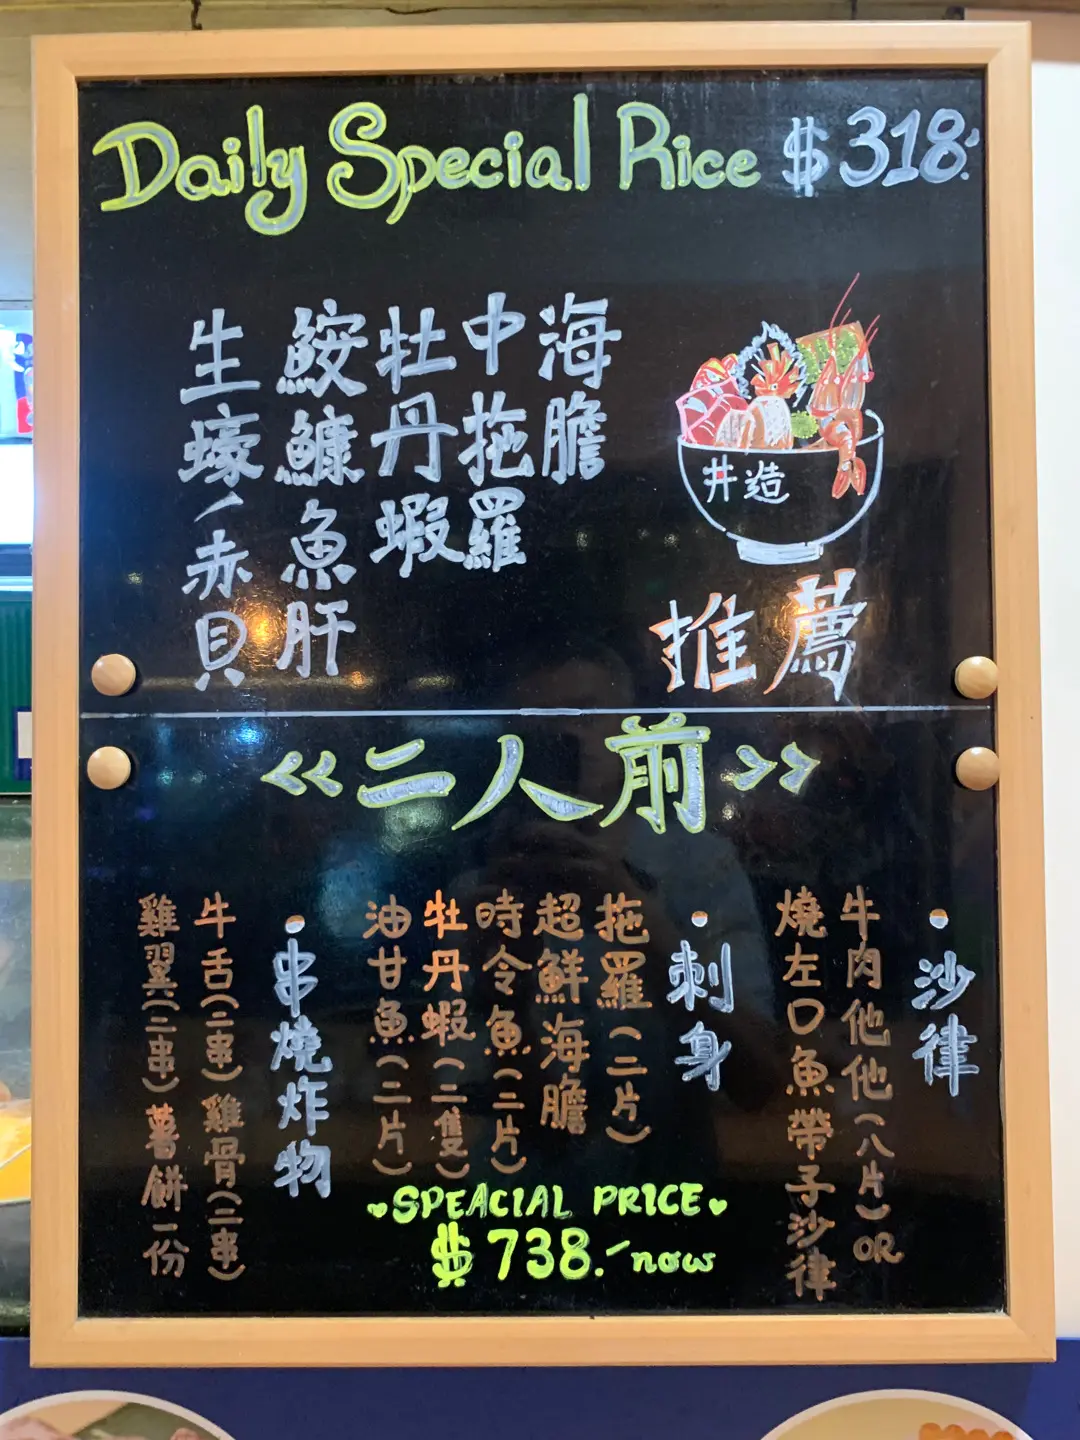 Daily Special Rice $318.-
海膽
中拖羅
牡丹蝦
鮟鱇魚肝
生蠔、赤貝
丼造
推薦
<<二人前>>
• 沙律
牛肉他他(八片)OR
燒左口魚帶子沙律
• 刺身
拖羅(二片)
超鮮海膽
時令魚(二片)
牡丹蝦(二隻)
油甘魚(二片)
• 串燒炸物
牛舌(二串) 雞骨(二串)
雞翼(二串) 薯餅一份
♥SPEACIAL PRICE♥
$738.- now